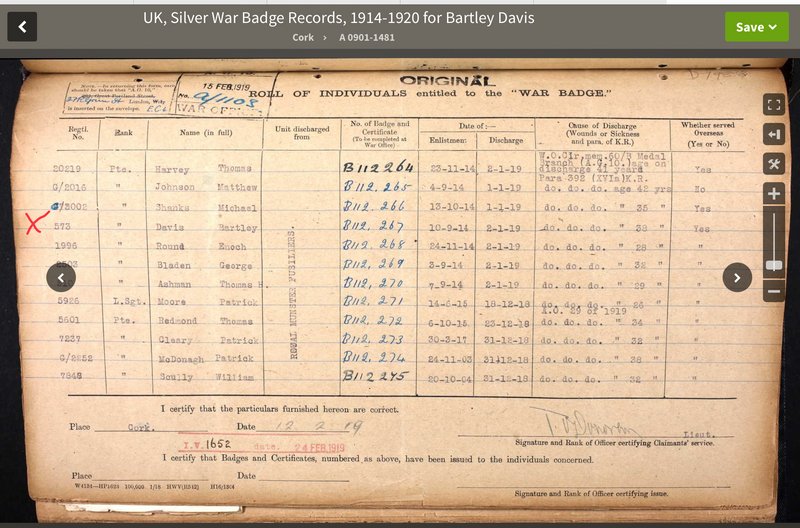 UK, Silver War Badge Records, 1914-1920 for Bartley Davis
Cork > A 0901-1481
Save
ORIGINAL
15 FEB. 1919
No. a/1108
WAR OFFICE
ROLL OF INDIVIDUALS entitled to the "WAR BADGE."
Regtl. No. Rank Name (in full) Unit discharged from No. of Badge and Certificate (To be completed at War Office) Date of :— Enlistment Discharge Cause of Discharge (Wounds or Sickness and para. of K.R.) Whether served Overseas (Yes or No)
ROYAL MUNSTER FUSILIERS.
W.O.Cir.mem.60/N Medal
Branch (A.G.10.)age on
20219 Pte. Harvey Thomas B112264 23-11-14 2-1-19 discharge 41 years Yes
Para 392 (XVIa)K.R.
G/2016 " Johnson Matthew B112.265 4-9-14 1-1-19 do. do. do. age 42 yrs No
G/3002 " Shanks Michael B112.266 13-10-14 1-1-19 do. do. do. " 35 " Yes
X 573 " Davis Bartley B112.267 10-9-14 2-1-19 do. do. do. " 38 " Yes
1996 " Round Enoch B112.268 24-11-14 1-1-19 do. do. do. " 28 " "
" Bladen George B112.269 3-9-14 2-1-19 do. do. do. " 32 " "
" Ashman Thomas H. B112.270 7-9-14 2-1-19 do. do. do. " 29 " "
5926 L.Sgt. Moore Patrick B112.271 14-6-15 18-12-18 do. do. do. " 26 " "
A.O. 29 of 1919
5601 Pte. Redmond Thomas B112.272 6-10-15 23-12-18 do. do. do. " 34 " "
7237 " Cleary Patrick B112.273 30-3-17 31-12-18 do. do. do. " 32 " "
G/2252 " McDonagh Patrick B112.274 24-11-03 31-12-18 do. do. do. " 38 " "
7848 " Scully William B112275 20-10-04 31-12-18 do. do. do. " 32 " "
I certify that the particulars furnished herein are correct.
Place Cork. Date 12.2.19
Lieut.
Signature and Rank of Officer certifying Claimants' service.
I.V. 1652 date. 24 FEB. 1919
I certify that Badges and Certificates, numbered as above, have been issued to the individuals concerned.
Place Date
Signature and Rank of Officer certifying issue.